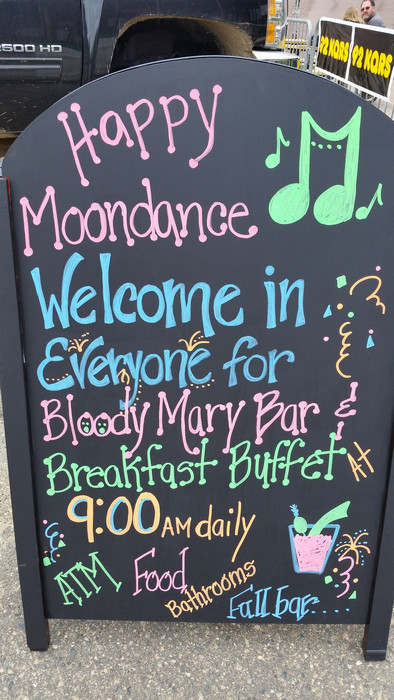 2500 HD
92 KQRS 92 KQRS
Happy
Moondance
Welcome in
Everyone for
Bloody Mary Bar &
Breakfast Buffet At
9:00 AM daily
ATM Food Bathrooms Full bar.....